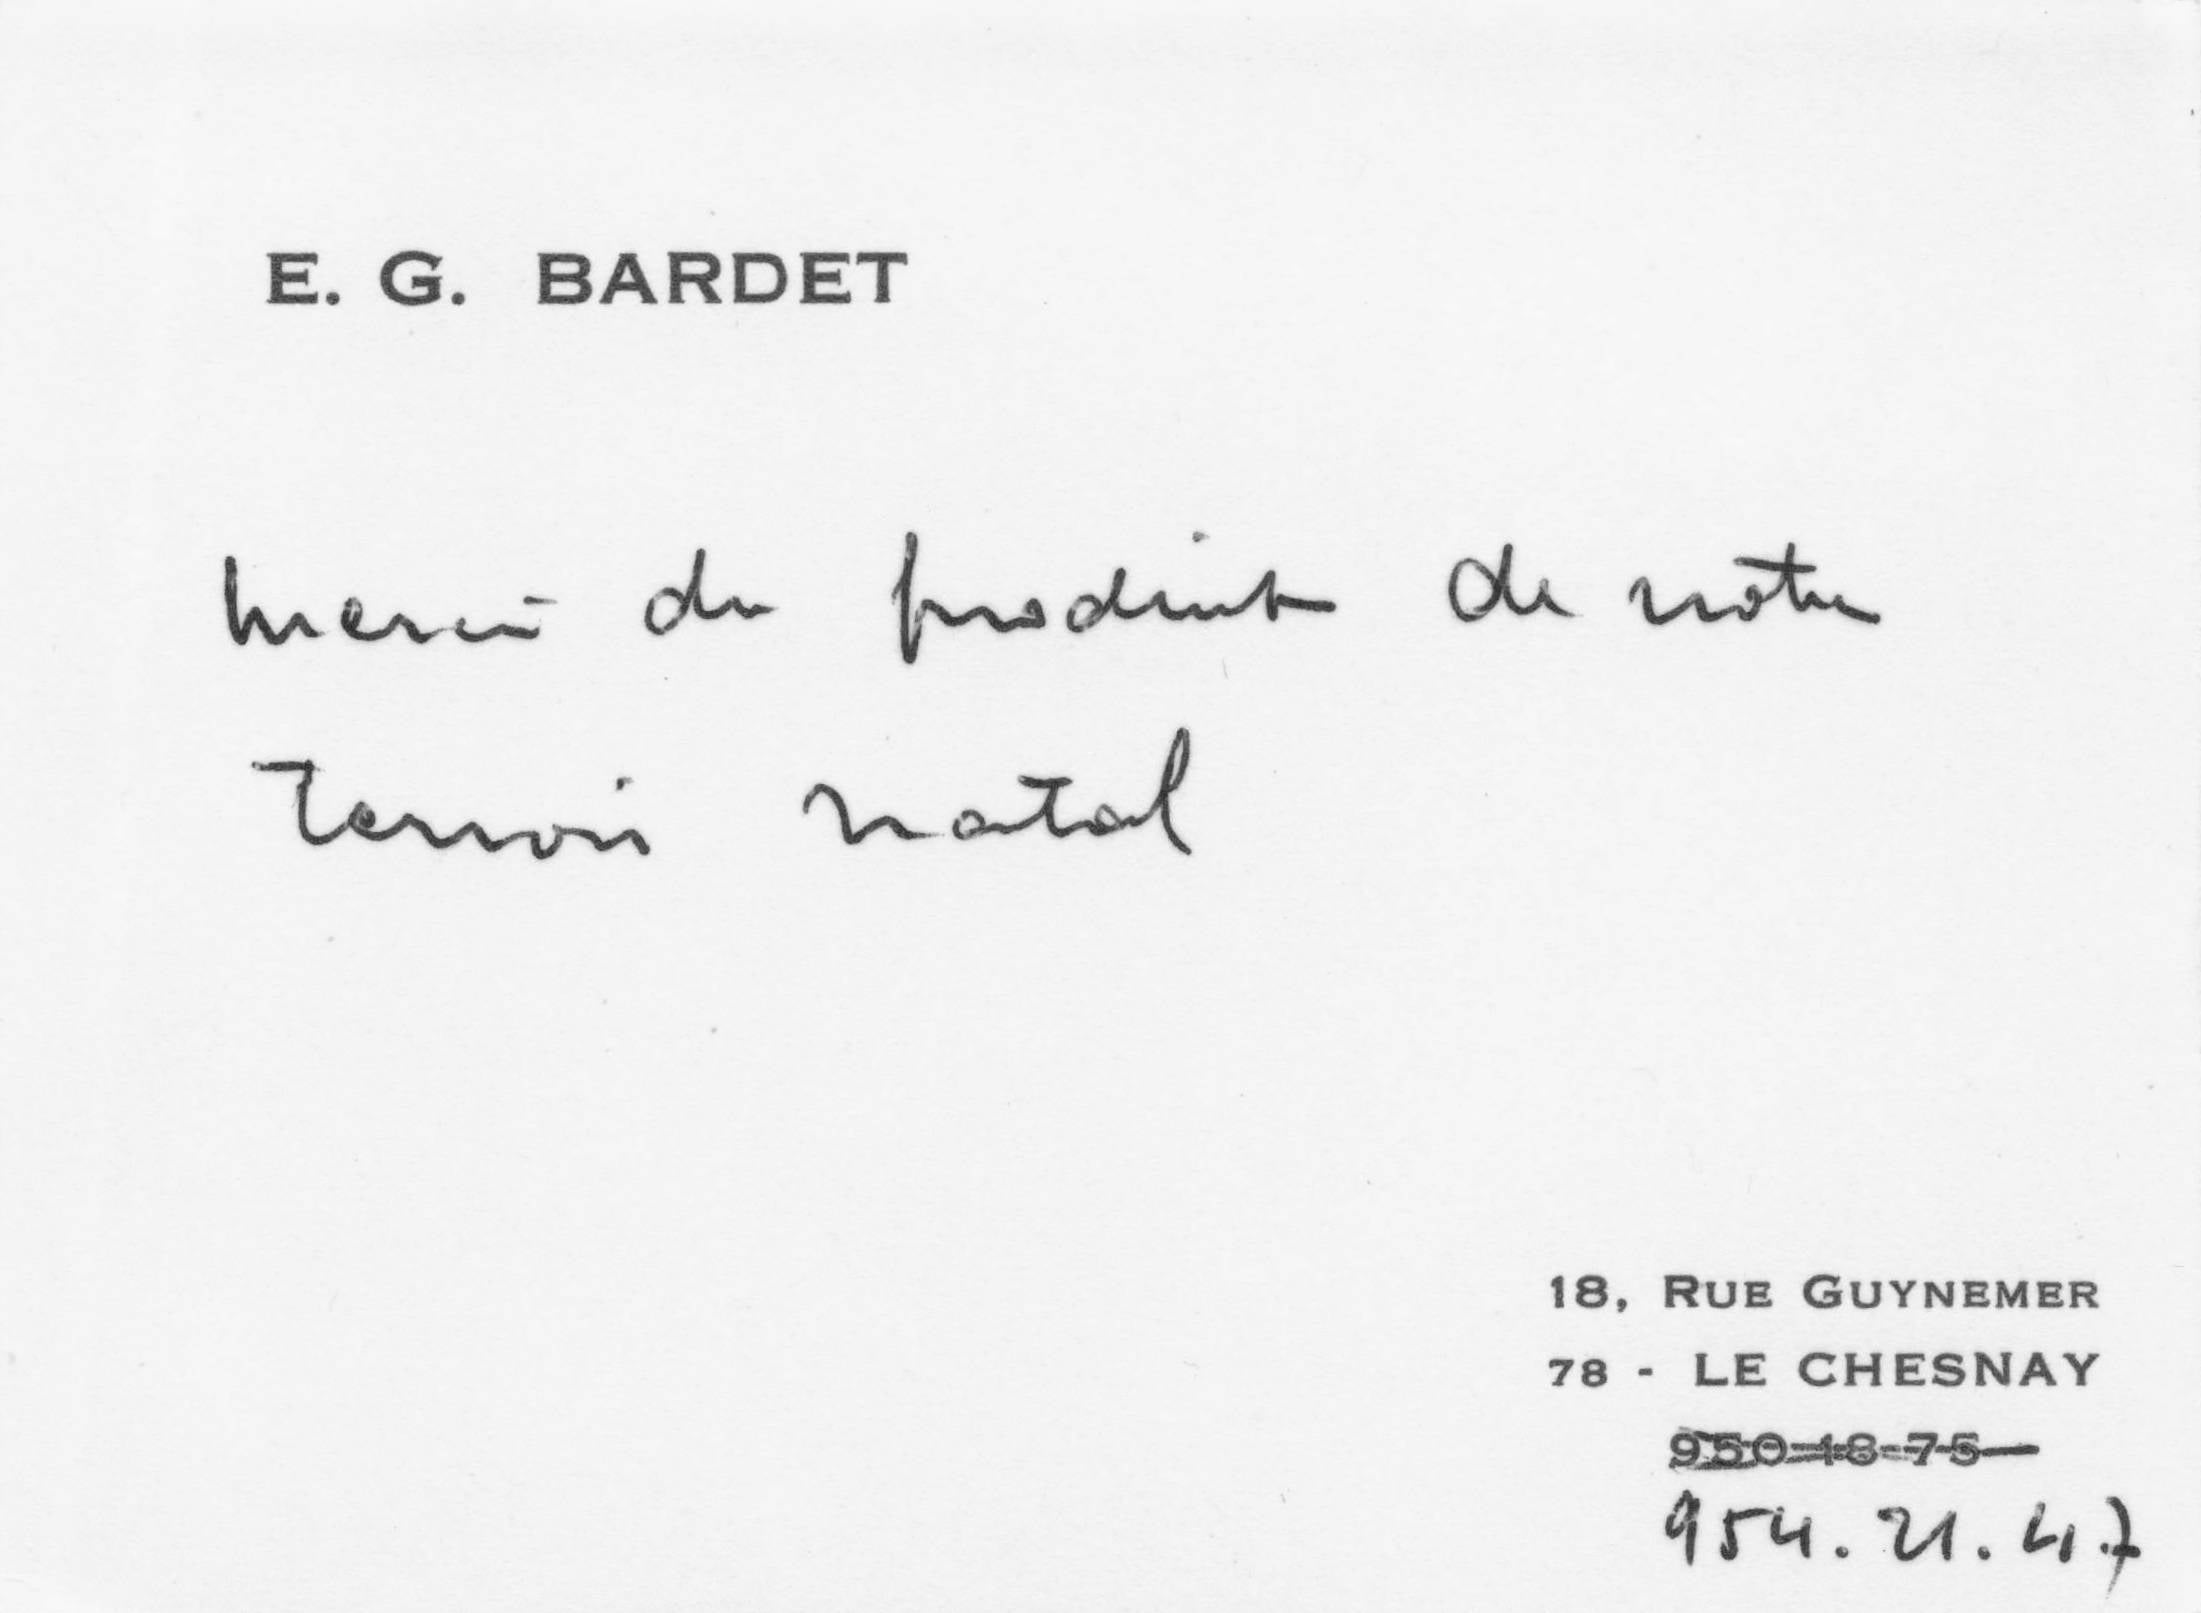 E. G. BARDET
merci du produit de notre
terroir natal
18, RUE GUYNEMER
78 - LE CHESNAY
950-18-75
954.21.47